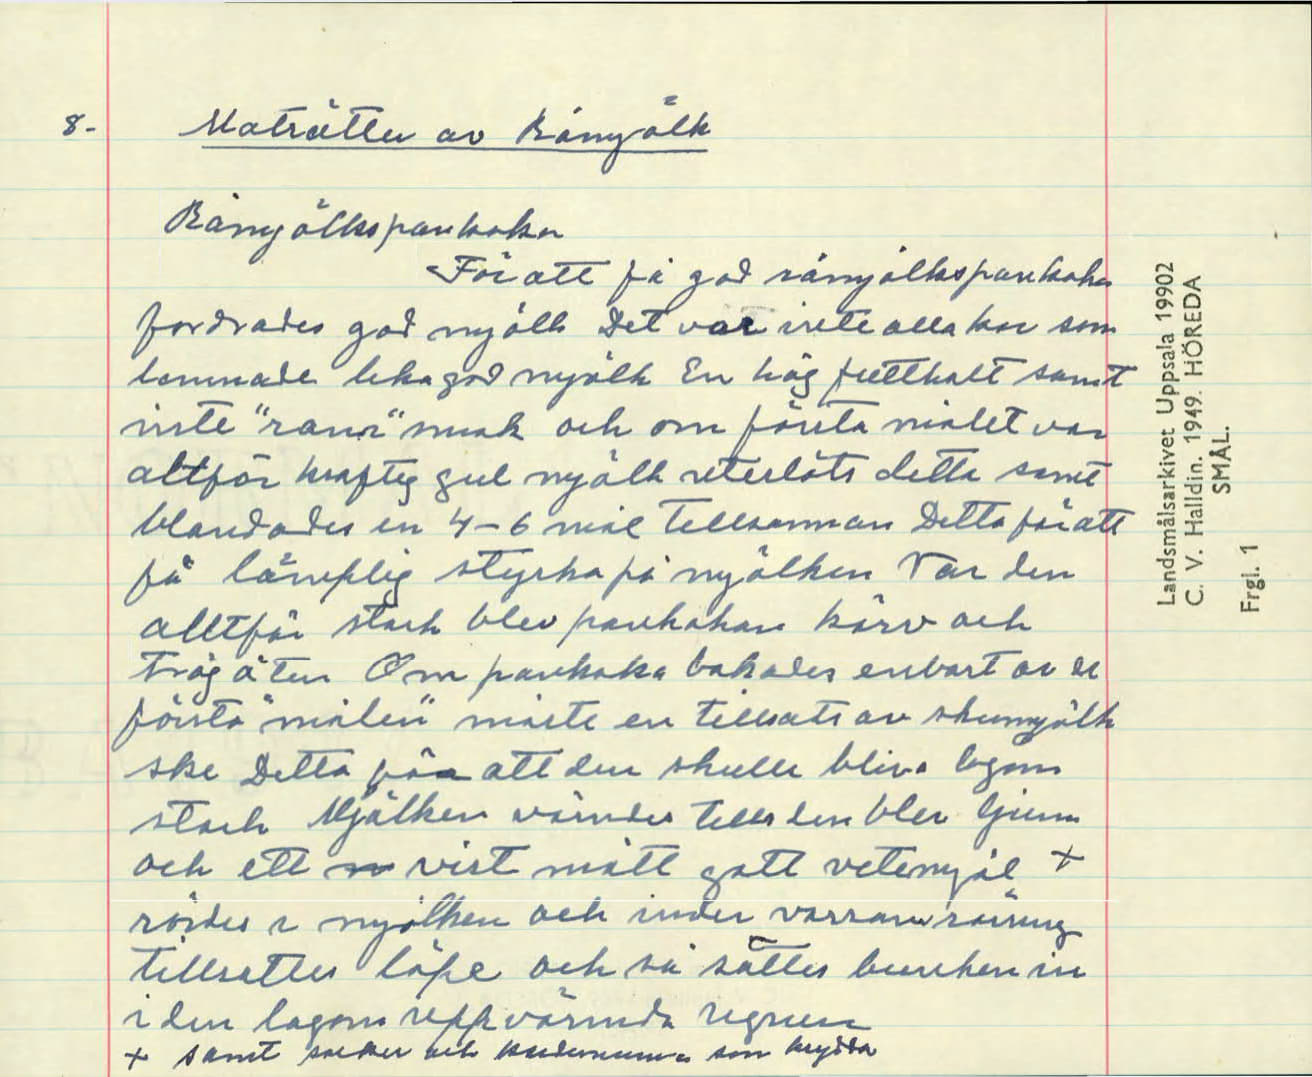 8-
Maträtter av Råmjölk
Råmjölkspankaka
För att få god råmjölkspankaka
fordrades god mjölk Det var inte alla kor som
lämnade lika god mjölk En hög fetthalt samt
inte "ram" smak och om första målet var
alltför kraftig gul mjölk uteslöts detta samt
blandades en 4-6 mål tillsamman Detta för att
få lämplig styrka på mjölken Var den
alltför stark blev pankakan kärv och
trög äten Om pankaka bakades enbart av de
första "målen" måste en tillsats av skummjölk
ske Detta för att den skulle bliva lagom
stark Mjölken värmdes tills den blev ljum
och ett visst mått gott vetemjöl +
rördes i mjölken och under varsam röring
tillsattes löpe och så sattes bunken in
i den lagom uppvärmda ugnen
+ samt socker och kardemumma som krydda
Landsmålsarkivet Uppsala 19902
C. V. Halldin. 1949. HÖREDA
SMÅL.
Frgl. 1